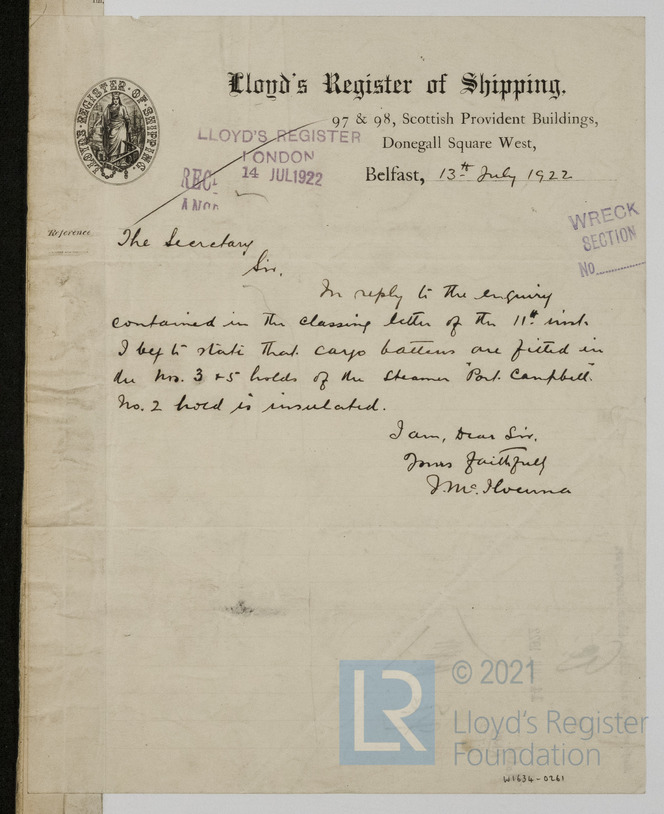 LLOYD'S REGISTER OF SHIPPING.
Lloyd's Register of Shipping.
97 & 98, Scottish Provident Buildings,
Donegall Square West,
Belfast, 13th July 1922
LLOYD'S REGISTER
LONDON
14 JUL 1922
WRECK
SECTION
No.
Reference
The Secretary
Sir,
In reply to the enquiry
contained in the classing letter of the 11th inst.
I beg to state that cargo battens are fitted in
the Nos. 3 & 5 holds of the Steamer "Port Campbell".
No. 2 hold is insulated.
I am, Dear Sir,
Yours faithfully
LR
© 2021
Lloyd's Register
Foundation
W1634-0261